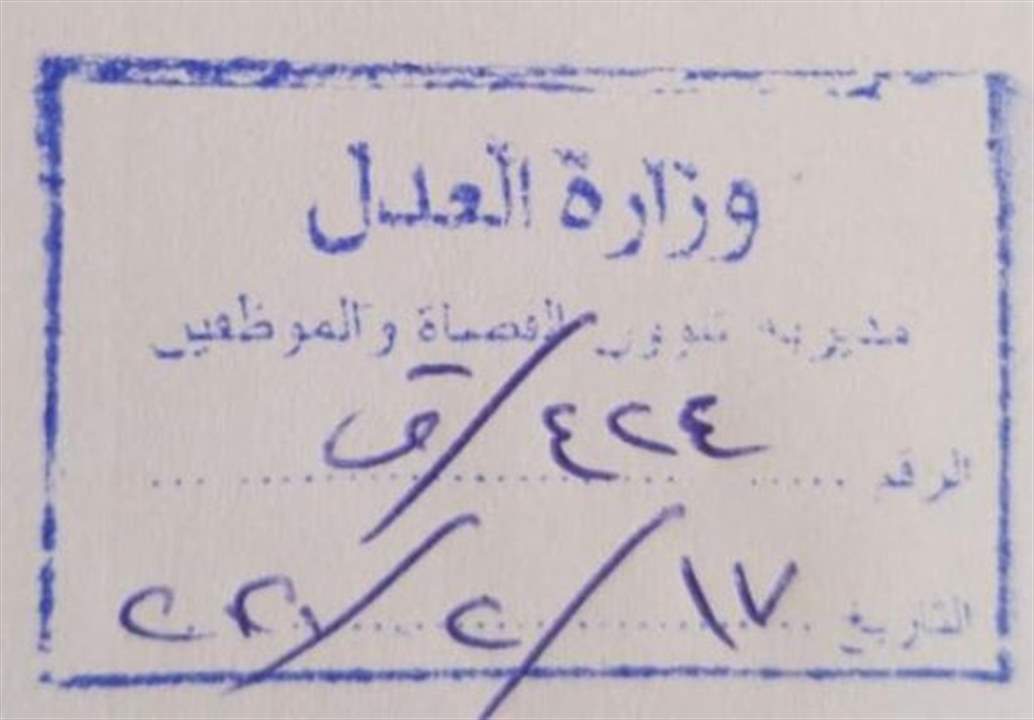 وزارة العدل
مديرية شؤون القضاة والموظفين
الرقم ٤٢٤/ق
التاريخ ١٧/٢/